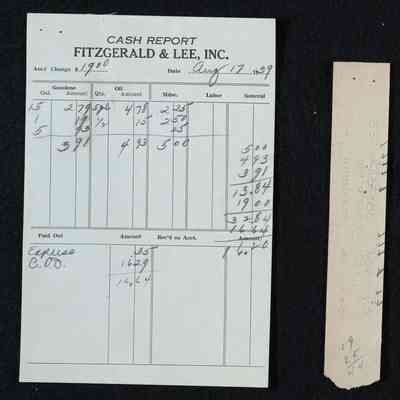 CASH REPORT
FITZGERALD & LEE, INC.
Am't Change $ 19.00 Date Aug 17 1929
Gasoline Oil Mdse. Labor General
Gal. Amount Qts. Amount
15 2 79 4 78 2 25
1 19 1/2 15 2 50
5 93 25
3 91 4 93 5 00
5 00
4 93
3 91
13.84
19 00
32 84
16 64
Paid Out Amount Rec'd on Acct. Amount
Express .35
C.O.D. 16 29
16.64
19
25